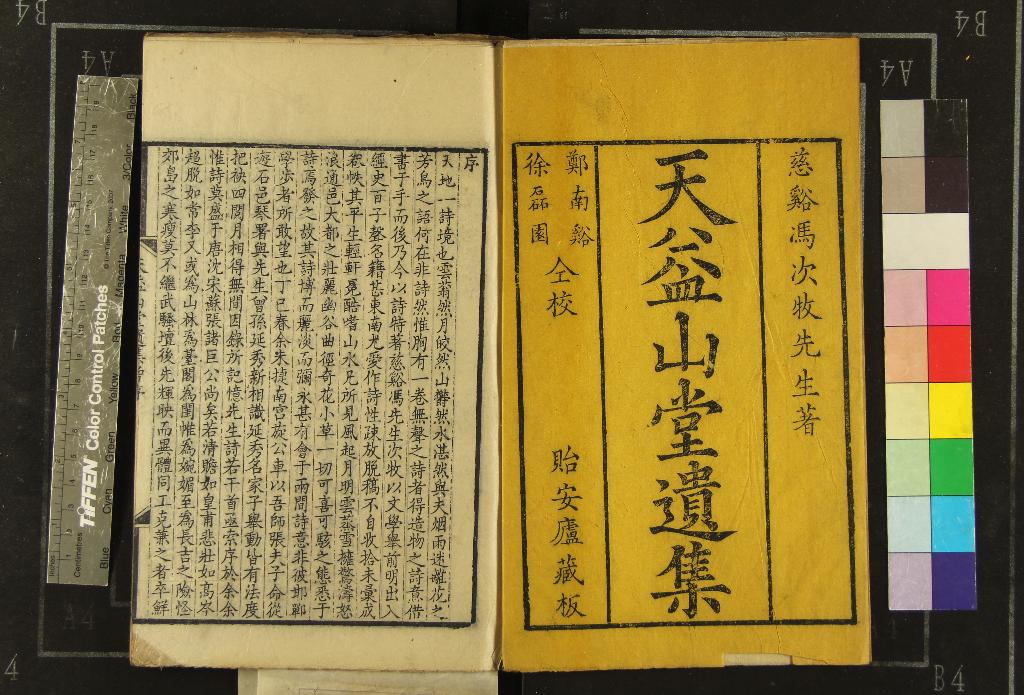 慈谿馮次牧先生著
天益山堂遺集
鄭南谿
徐磊園
仝校
貽安廬藏板
序
天地一詩境也雲蓊然月皎然山鬱然水湛然與夫烟雨迷離花之
芳鳥之語何在非詩然惟胸有一卷無聲之詩者得造物之詩意借
書于手而後乃今以詩特著慈谿馮先生次牧以文學舉前明出入
經史百子聲名藉甚東南尤愛作詩性疎放脫稿不自收拾未彙成
卷帙其平生輕軒冕酷嗜山水凡所見風起月明雲蒸雪擁驚濤怒
浪通邑大都之壯麗幽谷曲徑奇花小草一切可喜可駭之態悉于
詩焉發之故其詩博而麗淡而彌永甚有會于兩間詩意非彼邯鄲
學步者所敢望也丁巳春余朱捷南宮旋公車以吾師張夫子命從
遊石邑琴署與先生曾孫延秀新相識延秀名家子舉動皆有法度
把袂四閱月相得無間因錄所記憶先生詩若干首亟索序於余余
惟詩莫盛于唐沈宋蘇張諸巨公尚矣若清贍如皇甫悲壯如高岑
超脫如常李又或為山林為臺閣為閨帷為婉媚至為長吉之險怪
郊島之寒瘦莫不繼武騷壇後先輝映而異體同工克兼之者卒鮮
TIFFEN Color Control Patches
© The Tiffen Company, 2007
Inches
Centimetres
Blue
Cyan
Green
Yellow
Red
Magenta
White
3/Color
Black
B4
A4
B4
A4
A4
4
B4